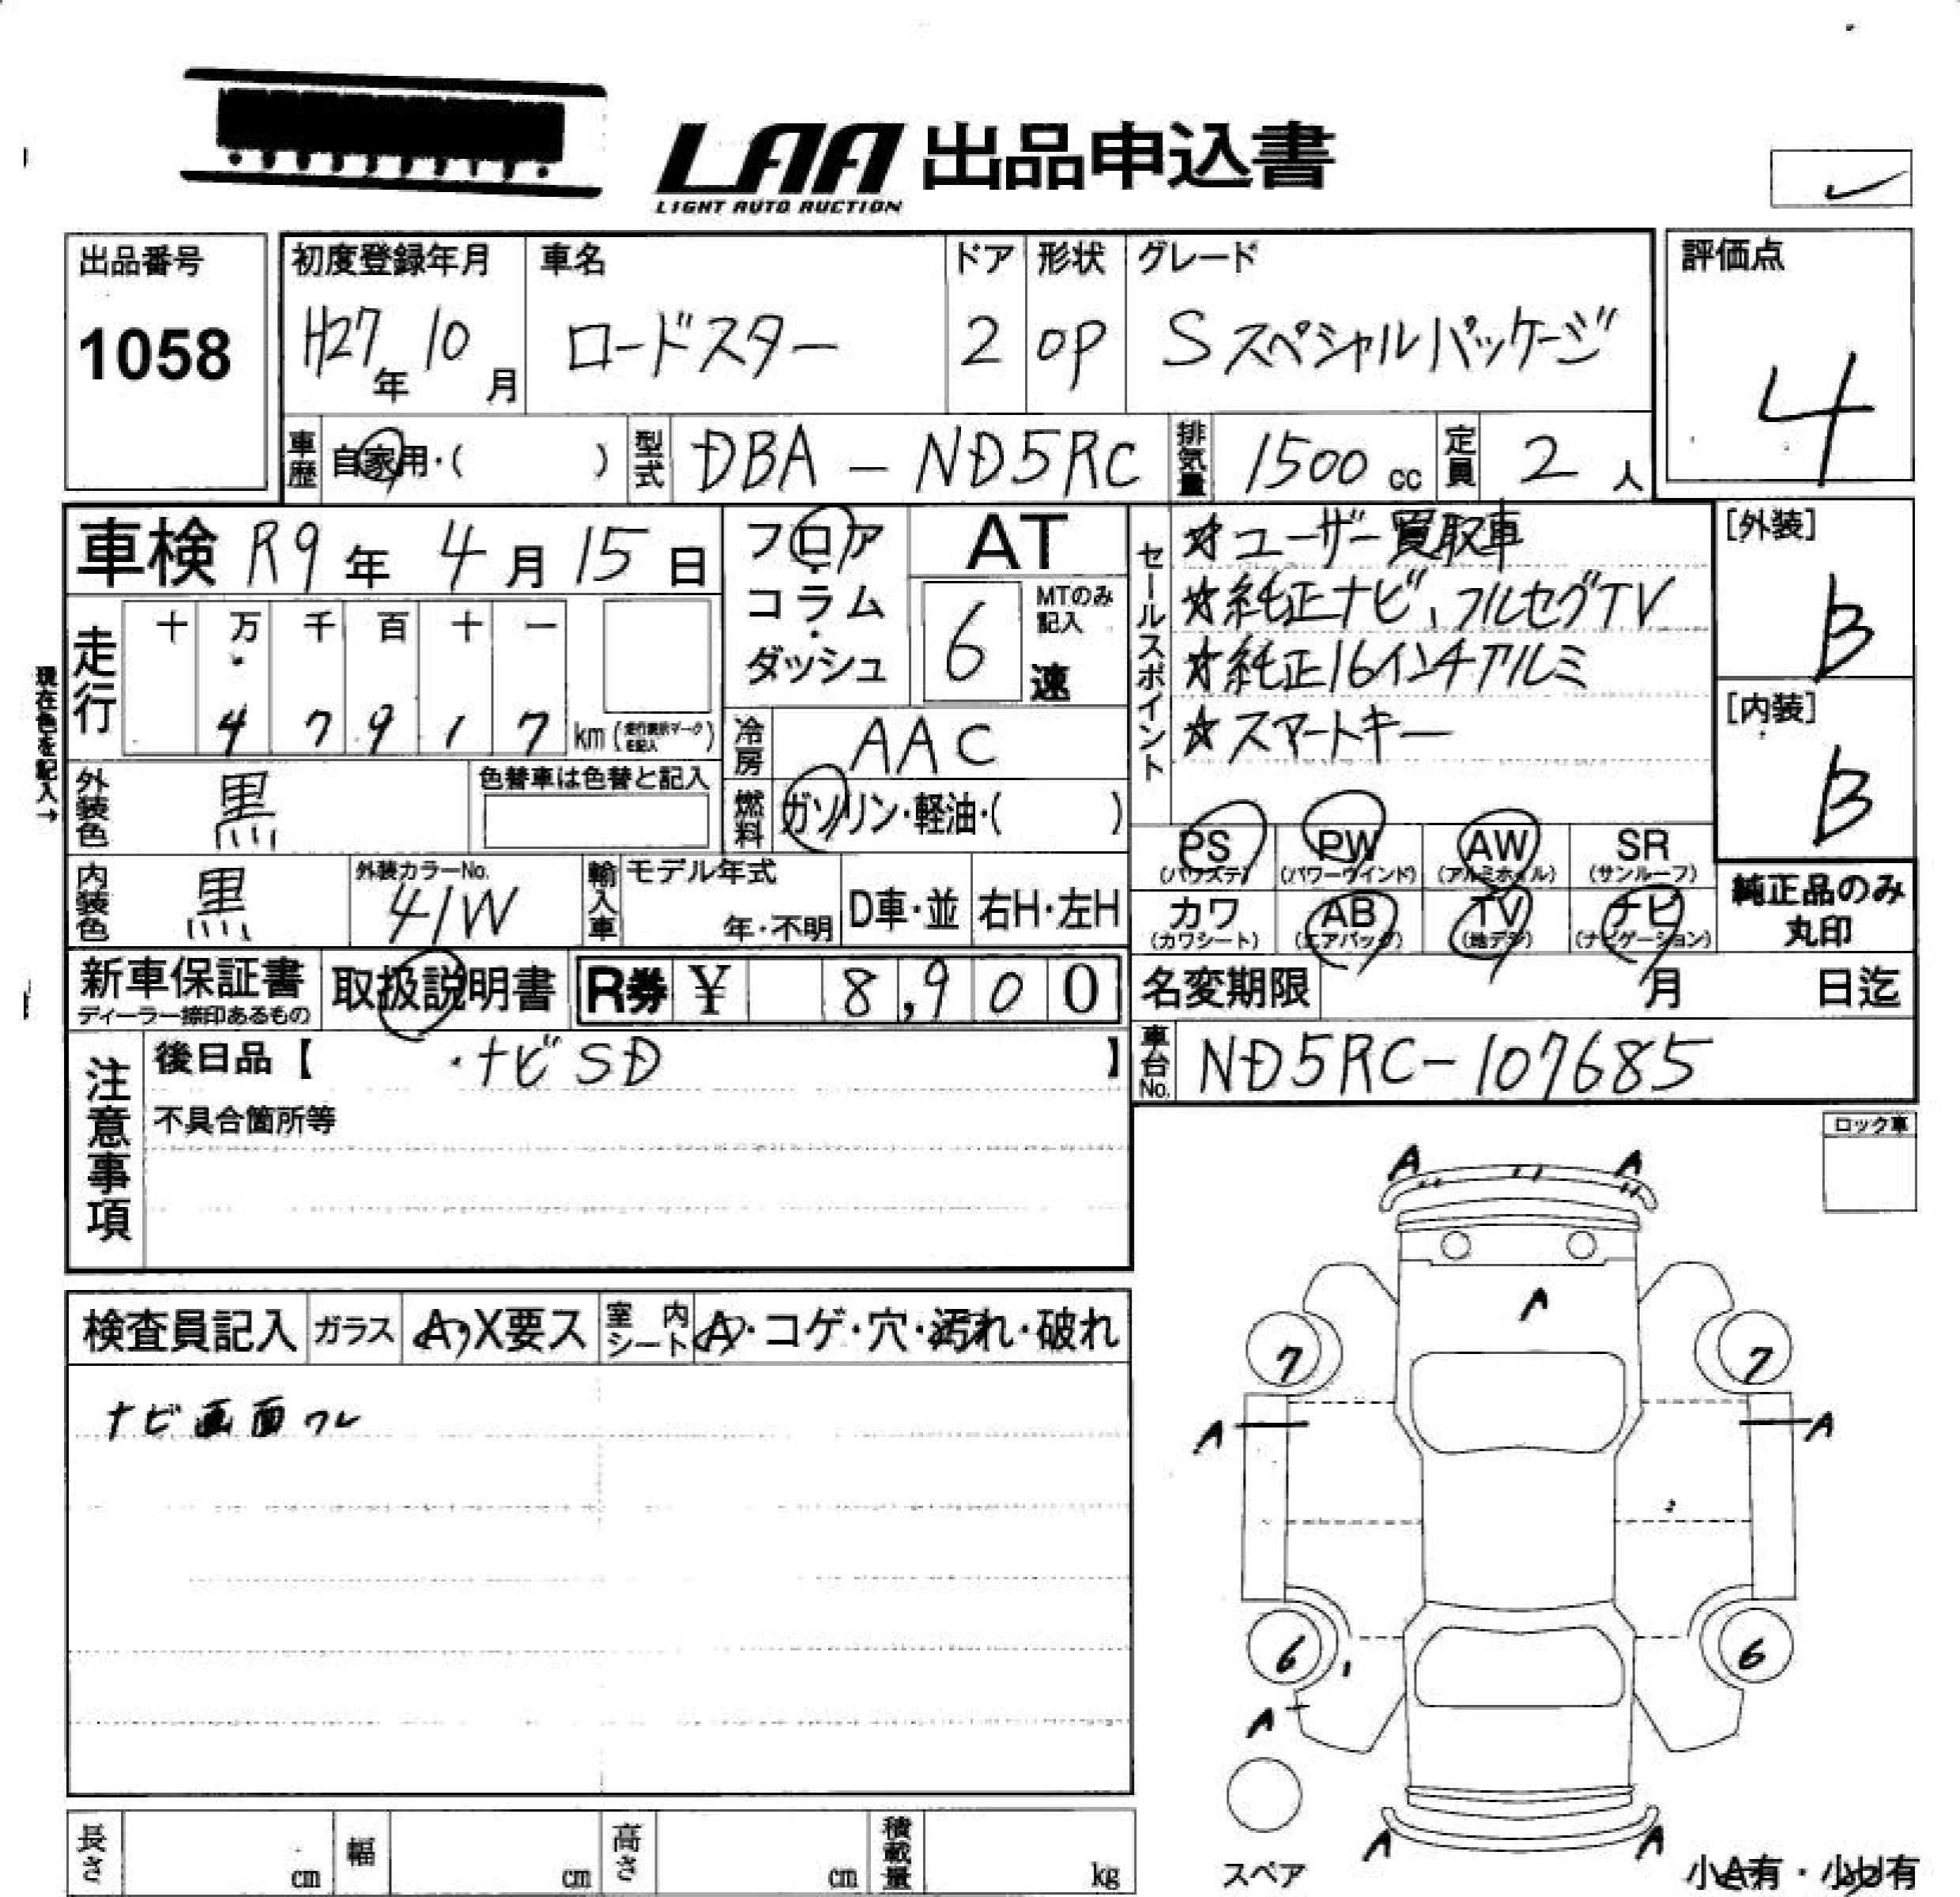 LAA 出品申込書
LIGHT AUTO AUCTION
出品番号
1058
初度登録年月
H27年 10月
車名
ロードスター
ドア
2
形状
OP
グレード
S スペシャルパッケージ
評価点
4
車歴
自家用・( )
型式
DBA - ND5RC
排気量
1500 cc
定員
2 人
車検 R9年 4月 15日
走行
十 万 千 百 十 一
4 7 9 1 7 km
現在色を記入→
外装色
黒
色替車は色替と記入
内装色
黒
外装カラーNo.
41W
輸入車
モデル年式
年・不明
D車・並
右H・左H
フロア・コラム・ダッシュ
AT
6
MTのみ記入
速
冷房
AAC
燃料
ガソリン・軽油・( )
セールスポイント
☆ユーザー買取車
☆純正ナビ、フルセグTV
☆純正16インチアルミ
☆スマートキー
[外装]
B
[内装]
B
PS
(パワステ)
PW
(パワーウインド)
AW
(アルミホイル)
SR
(サンルーフ)
カワ
(カワシート)
AB
(エアバッグ)
TV
(地デジ)
ナビ
(ナビゲーション)
純正品のみ
丸印
新車保証書
ディーラー捺印あるもの
取扱説明書
R券 ¥ 8,900
名変期限 月 日迄
車台No.
ND5RC-107685
注意事項
後日品【 ・ナビSD 】
不具合箇所等
ロック車
検査員記入
ガラス
A・X要ス
室内シート
A・コゲ・穴・汚れ・破れ
ナビ画面ワレ
A A
A
7 7
A A
6 6
A
A A
スペア
小A有・小U有
長さ cm
幅 cm
高さ cm
積載量 kg